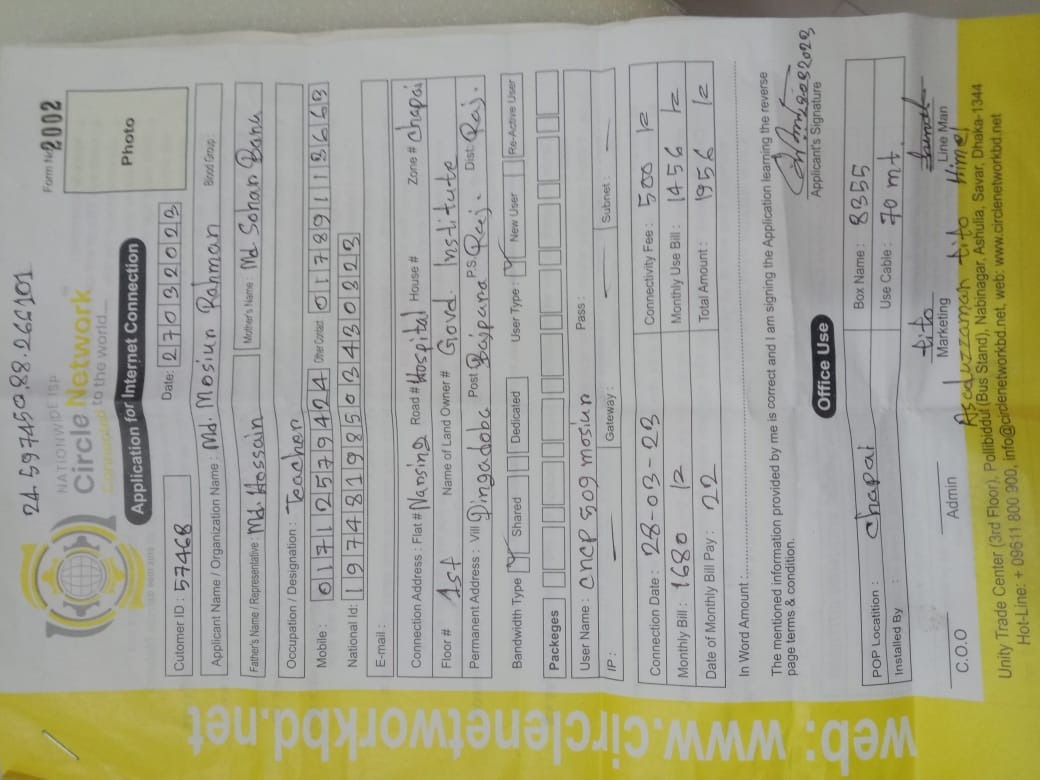 24.597450,88.266101
Form No 2002
NATIONWIDE ISP
Circle Network
Connected to the world...
Application for Internet Connection
Photo
Cutomer ID : 57468
Date: 27032023
Applicant Name / Organization Name : Md. Mosiur Rahman Blood Group :
Father's Name / Representative : Md. Hossain Mother's Name : Md Sohan Banu
Occupation / Designation : Teacher
Mobile : 01712579424 Other Contact 01789113663
National Id: 19748198503430323
E-mail :
Connection Address : Flat # Narsing Road # Hospital House # Zone # Chapai
Floor # 1st Name of Land Owner # Goved. Institute
Permanent Address : Vill Dingadoba Post Rajpara P.S. Raj. Dist: Raj.
Bandwidth Type Shared Dedicated User Type : New User Re-Active User
Packeges
User Name : cncp509mosiur Pass :
IP : Gateway : Subnet :
Connection Date : 28-03-23 Connectivity Fee : 500 /=
Monthly Bill : 1680 /= Monthly Use Bill : 1456 /=
Date of Monthly Bill Pay : 22 Total Amount : 1956 /=
In Word Amount :
The mentioned information provided by me is correct and I am signing the Application learning the reverse
page terms & condition.
Applicant's Signature
Office Use
POP Locatition : Chapai Box Name : 8355
Installed By : Use Cable : 70 mt.
tito
C.O.O Admin Marketing Line Man
Asaduzzaman tito Himel
Unity Trade Center (3rd Floor), Pollibiddut (Bus Stand), Nabinagar, Ashulia, Savar, Dhaka-1344
Hot-Line: + 09611 800 900, info@circlenetworkbd.net, web: www.circlenetworkbd.net
web: www.circlenetworkbd.net